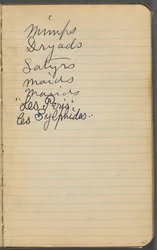 Nimps
Dryads
Satyrs
maids
Maids
"Les Peris"
Les Sylphides.